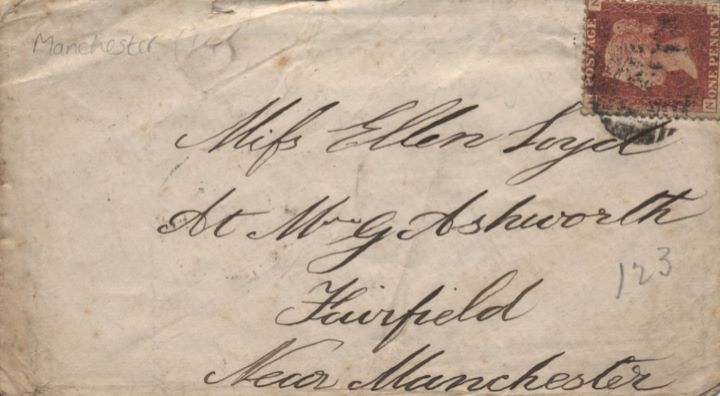 Manchester
POSTAGE
ONE PENNY
N
Miſs Ellen Loyd
At Mrs G Ashworth
Fairfield
123
Near Manchester